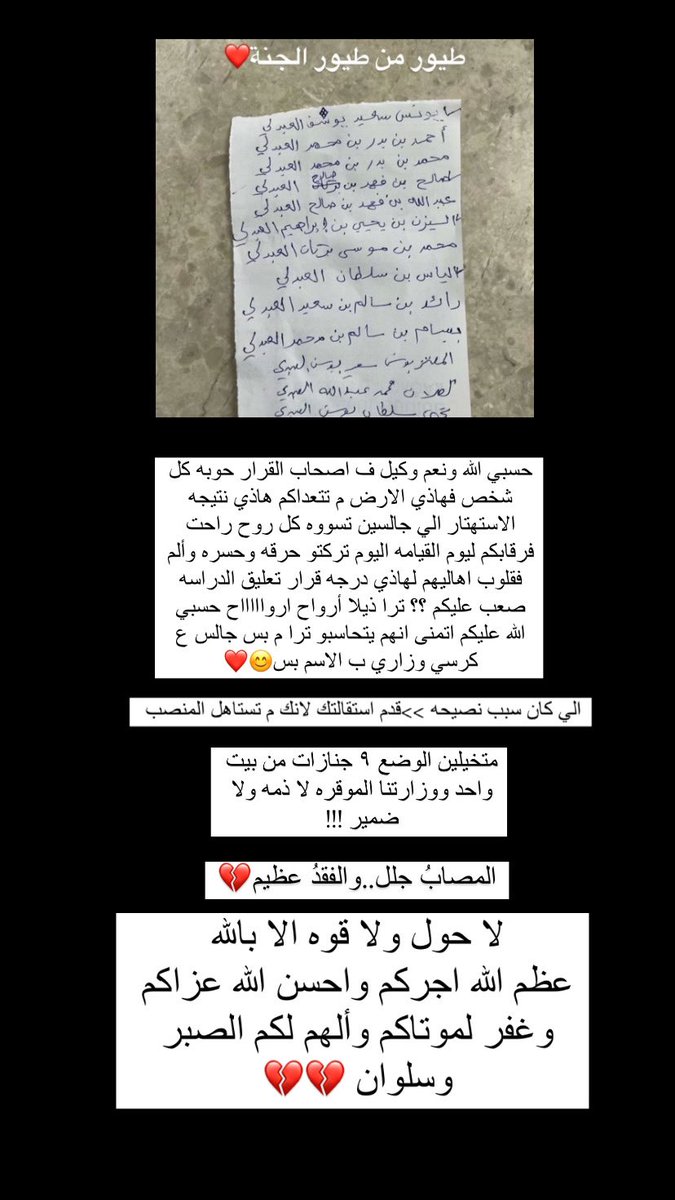 طيور من طيور الجنة❤️
يونس سعيد يوسف العبدلي
أحمد بن بدر بن محمد العبدلي
محمد بن بدر بن محمد العبدلي
صالح بن فهد بن صالح العبدلي
عبدالله بن فهد بن صالح العبدلي
اليزن بن يحيى بن إبراهيم العبدلي
محمد بن موسى العبدلي
الياس بن سلطان العبدلي
رائد بن سالم بن سعيد العبدلي
بسام بن سالم بن محمد العبدلي
يونس سعيد يونس العبدلي
محمد عبدالله العبدلي
سلطان يونس العبدلي
حسبي الله ونعم وكيل ف اصحاب القرار حوبه كل
شخص فهاذي الارض م تتعداكم هاذي نتيجه
الاستهتار الي جالسين تسووه كل روح راحت
فرقابكم ليوم القيامه اليوم تركتو حرقه وحسره وألم
فقلوب اهاليهم لهاذي درجه قرار تعليق الدراسه
صعب عليكم ؟؟ ترا ذيلا أرواح ارواااااح حسبي
الله عليكم اتمنى انهم يتحاسبو ترا م بس جالس ع
كرسي وزاري ب الاسم بس😊❤️
الي كان سبب نصيحه >>قدم استقالتك لانك م تستاهل المنصب
متخيلين الوضع ٩ جنازات من بيت
واحد ووزارتنا الموقره لا ذمه ولا
ضمير !!!
المصابُ جلل..والفقدُ عظيم💔
لا حول ولا قوه الا بالله
عظم الله اجركم واحسن الله عزاكم
وغفر لموتاكم وألهم لكم الصبر
وسلوان 💔💔